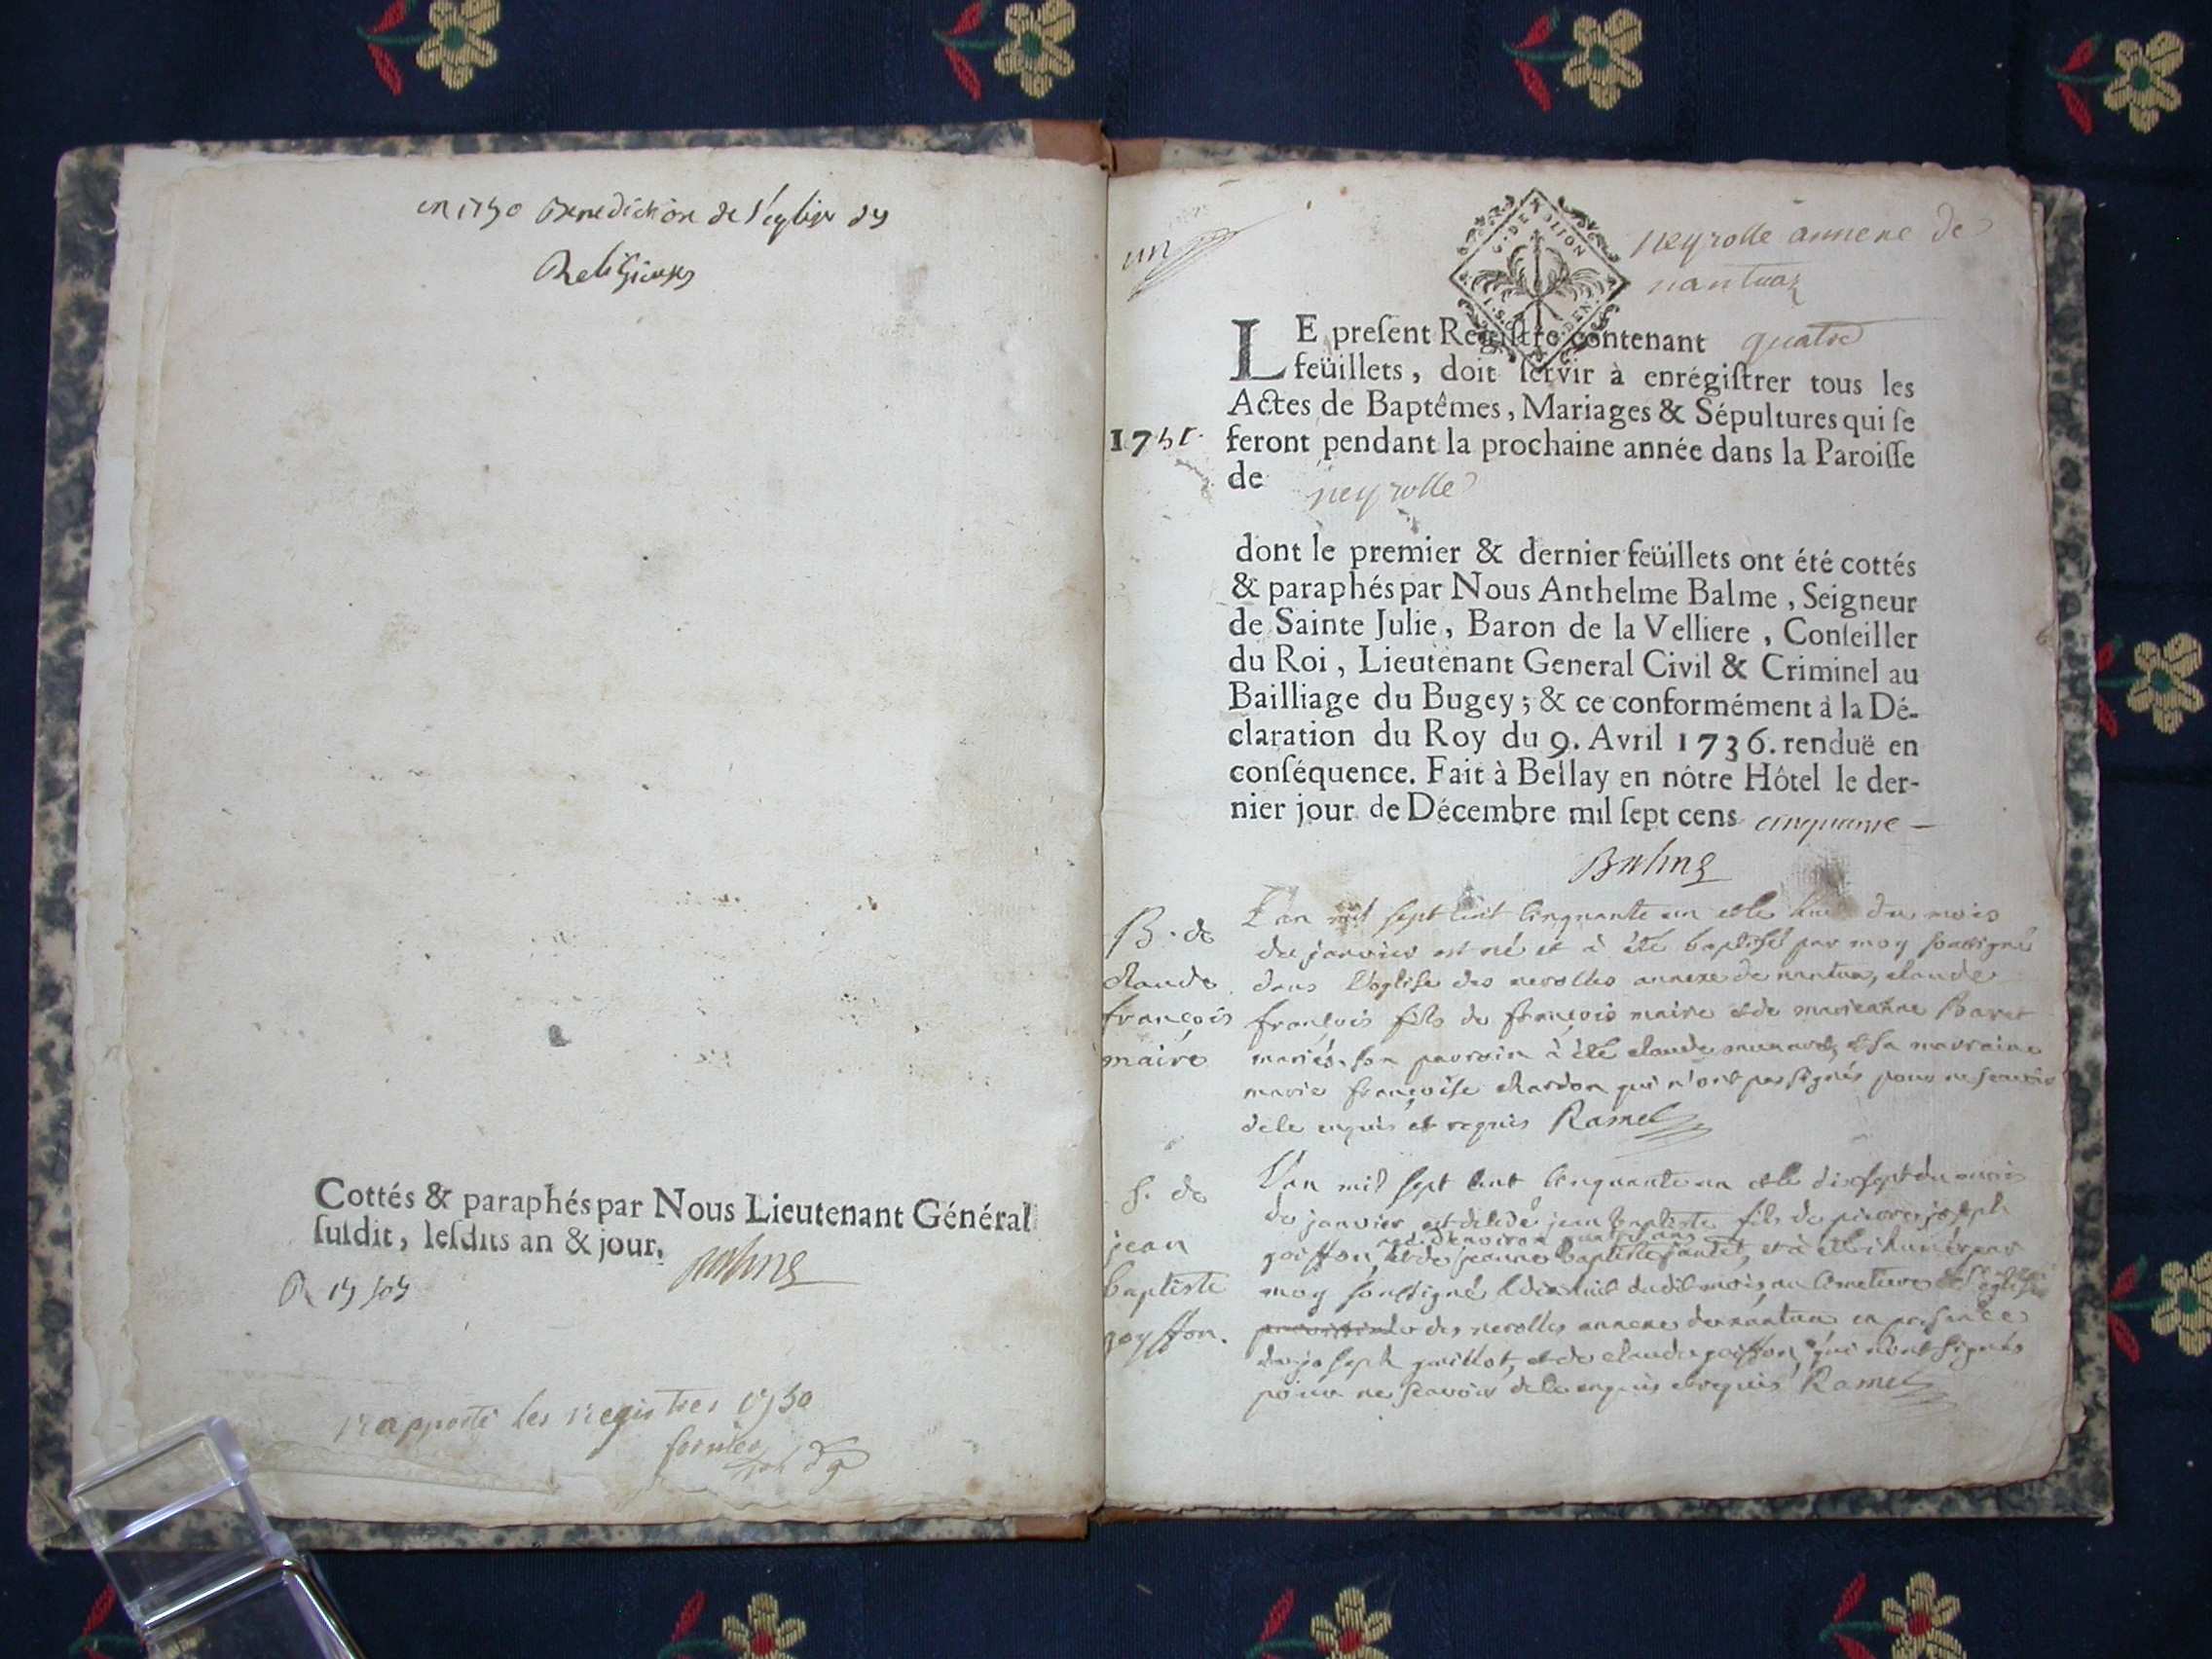 en 1750 Benediction de l'eglise des
Religieuses
Cottés & paraphés par Nous Lieutenant Général
suſdit, leſdits an & jour.
Balme
rapporté les registres 1750
un
G. DE DIJON
neyrolle annexe de
nantua
LE preſent Regiſtre contenant quatre
feüillets, doit ſervir à enrégiſtrer tous les
Actes de Baptêmes, Mariages & Sépultures qui ſe
1751. feront pendant la prochaine année dans la Paroiſſe
de neyrolle
dont le premier & dernier feüillets ont été cottés
& paraphés par Nous Anthelme Balme, Seigneur
de Sainte Julie, Baron de la Velliere, Conſeiller
du Roi, Lieutenant General Civil & Criminel au
Bailliage du Bugey; & ce conformément à la Dé-
claration du Roy du 9. Avril 1736. renduë en
conſéquence. Fait à Bellay en nôtre Hôtel le der-
nier jour de Décembre mil ſept cens cinquante
Balme
B. de
claude
françois
maire
L'an mil sept cent cinquante un et le huit du mois
de janvier est né et à été baptisé par moy soussigné
dans l'église des nerolles annexe de nantua, claude
françois fils de françois maire et de marieanne Baret
mariés. son parrain à été claude et sa marraine
marie françoise chardon qui n'ont pas signés pour ne scavoir
de le enquis et requis Ramel
S. de
jean
baptiste
goyffon.
L'an mil sept cent cinquante un et le dixsept du mois
de janvier est décédé jean baptiste fils de pierre joseph
agé d'environ quatre ans
goiffon, et de jeanne baptiste jantet, et à été inhumé par
moy soussigné le dixhuit dudit mois, au cimetiere de l'église
des nerolles annexe de nantua en présence
de joseph guillot, et de claude goiffon, qui n'ont signés
pour ne scavoir de le enquis et requis Ramel